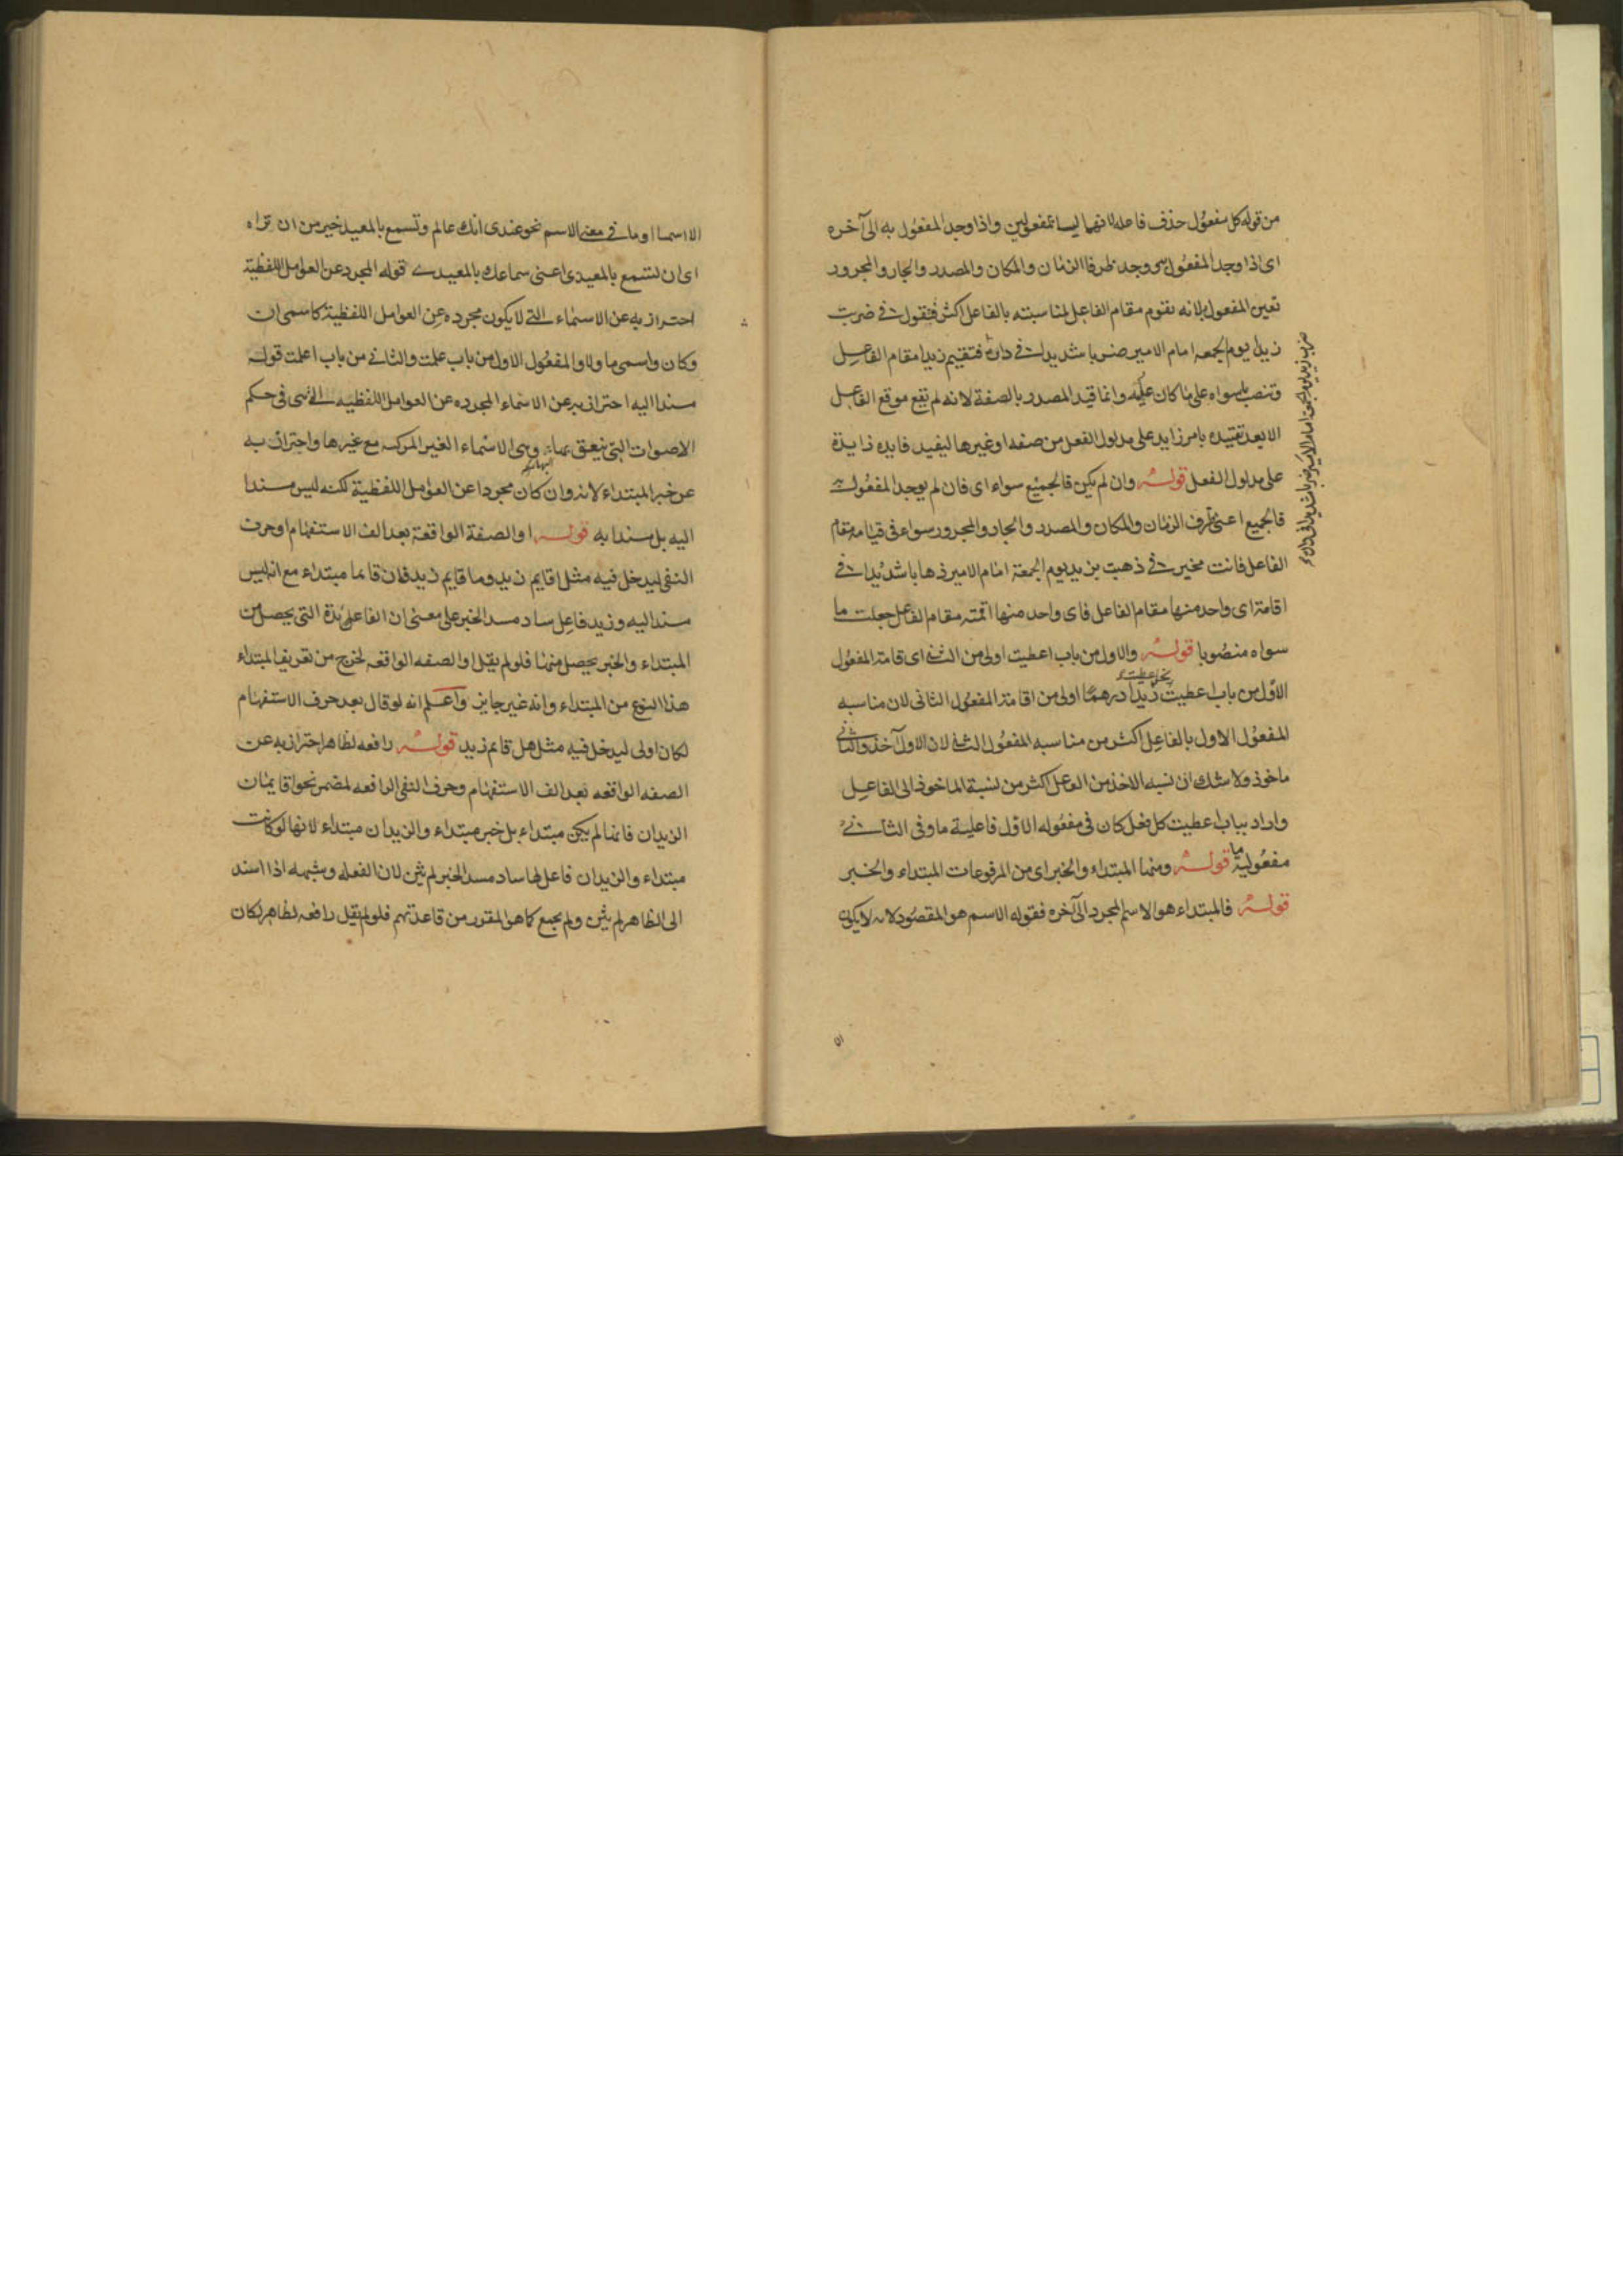 من قوله كل مفعول حذف فاعله لانهما ليسا بمفعولين واذا وجد المفعول به الى آخره
اى اذا وجد المفعول به ووجد ظرفا الزمان والمكان والمصدر والجار والمجرور
تعين المفعول به لانه يقوم مقام الفاعل لمناسبته بالفاعل اكثر فتقول فى ضربت
زيدا يوم الجمعه امام الامير ضربا شديدا فى داره فتقيم زيدا مقام الفاعل
وتنصب ما سواه على ما كان عليه وانما قيد المصدر بالصفة لانه لم يقع موقع الفاعل
الا بعد تقييده بامر زايد على مدلول الفعل من صفه او غيرها ليفيد فايده زايدة
على مدلول الفعل قوله وان لم يكن فالجميع سواء اى فان لم يوجد المفعول به
فالجميع اعنى ظرف الزمان والمكان والمصدر والجار والمجرور سواء فى قيامه مقام
الفاعل فانت مخير فى ذهبت بزيد يوم الجمعة امام الامير ذهابا شديدا فى
اقامة اى واحد منها مقام الفاعل فاى واحد منها اقمته مقام الفاعل جعلت ما
سواه منصوبا قوله والاول من باب اعطيت اولى من الثانى اى اقامة المفعول
الاول من باب اعطيت زيدا درهما اولى من اقامة المفعول الثانى لان مناسبه
المفعول الاول بالفاعل اكثر من مناسبه المفعول الثانى لان الاول آخذ والثانى
ماخوذ ولا شك ان نسبه الاخذ من الفاعل اكثر من نسبة الماخوذ الى الفاعل
واراد بباب اعطيت كل فعل كان فى مفعوله الاول فاعلية ما وفى الثانى
مفعولية ما قوله ومنها المبتداء والخبر اى من المرفوعات المبتداء والخبر
قوله فالمبتداء هو الاسم المجرد الى آخره فقوله الاسم هو المقصود لانه لا يكون
ضرب زيد يوم الجمعة امام الامير ضربا شديدا فى داره
الا اسما او ما فى معنى الاسم نحو عندى انك عالم وتسمع بالمعيد خير من ان تراه
اى ان تسمع بالمعيدى اعنى سماعك بالمعيدى قوله المجرد عن العوامل اللفظية
احتراز به عن الاسماء التى لا يكون مجرده عن العوامل اللفظية كاسمى ان
وكان واسمى ما ولا والمفعول الاول من باب علمت والثانى من باب اعلمت قوله
مسندا اليه احتراز به عن الاسماء المجرده عن العوامل اللفظيه التى هى فى حكم
الاصوات التى ينعق بها وهى الاسماء الغير المركبه مع غيرها واحتراز به
عن خبر المبتداء لانه وان كان مجردا عن العوامل اللفظية لكنه ليس مسندا
اليه بل مسندا به قوله او الصفة الواقعة بعد الف الاستفهام او حرف
النفى ليدخل فيه مثل اقايم زيد وما قايم زيد فان قايما مبتداء مع انه ليس
مسندا اليه وزيد فاعل ساد مسد الخبر على معنى ان الفايدة التى يحصل من
المبتداء والخبر يحصل منهما فلو لم يقل او الصفه الواقعه لخرج من تعريف المبتداء
هذا النوع من المبتداء وانه غير جايز واعلم انه لو قال بعد حرف الاستفهام
لكان اولى ليدخل فيه مثل هل قايم زيد قوله رافعه لظاهر احتراز به عن
الصفه الواقعه بعد الف الاستفهام وحرف النفى الرافعه لمضمر نحو اقايمان
الزيدان فانها لم يكن مبتداء بل خبر مبتداء والزيدان مبتداء لانها لو كانت
مبتداء والزيدان فاعل لها ساد مسد الخبر لم يثن لان الفعل وشبهه اذا اسند
الى الظاهر لم يثن ولم يجمع كما هو المقرر من قاعدتهم فلو لم يقل رافعه لظاهر لكان